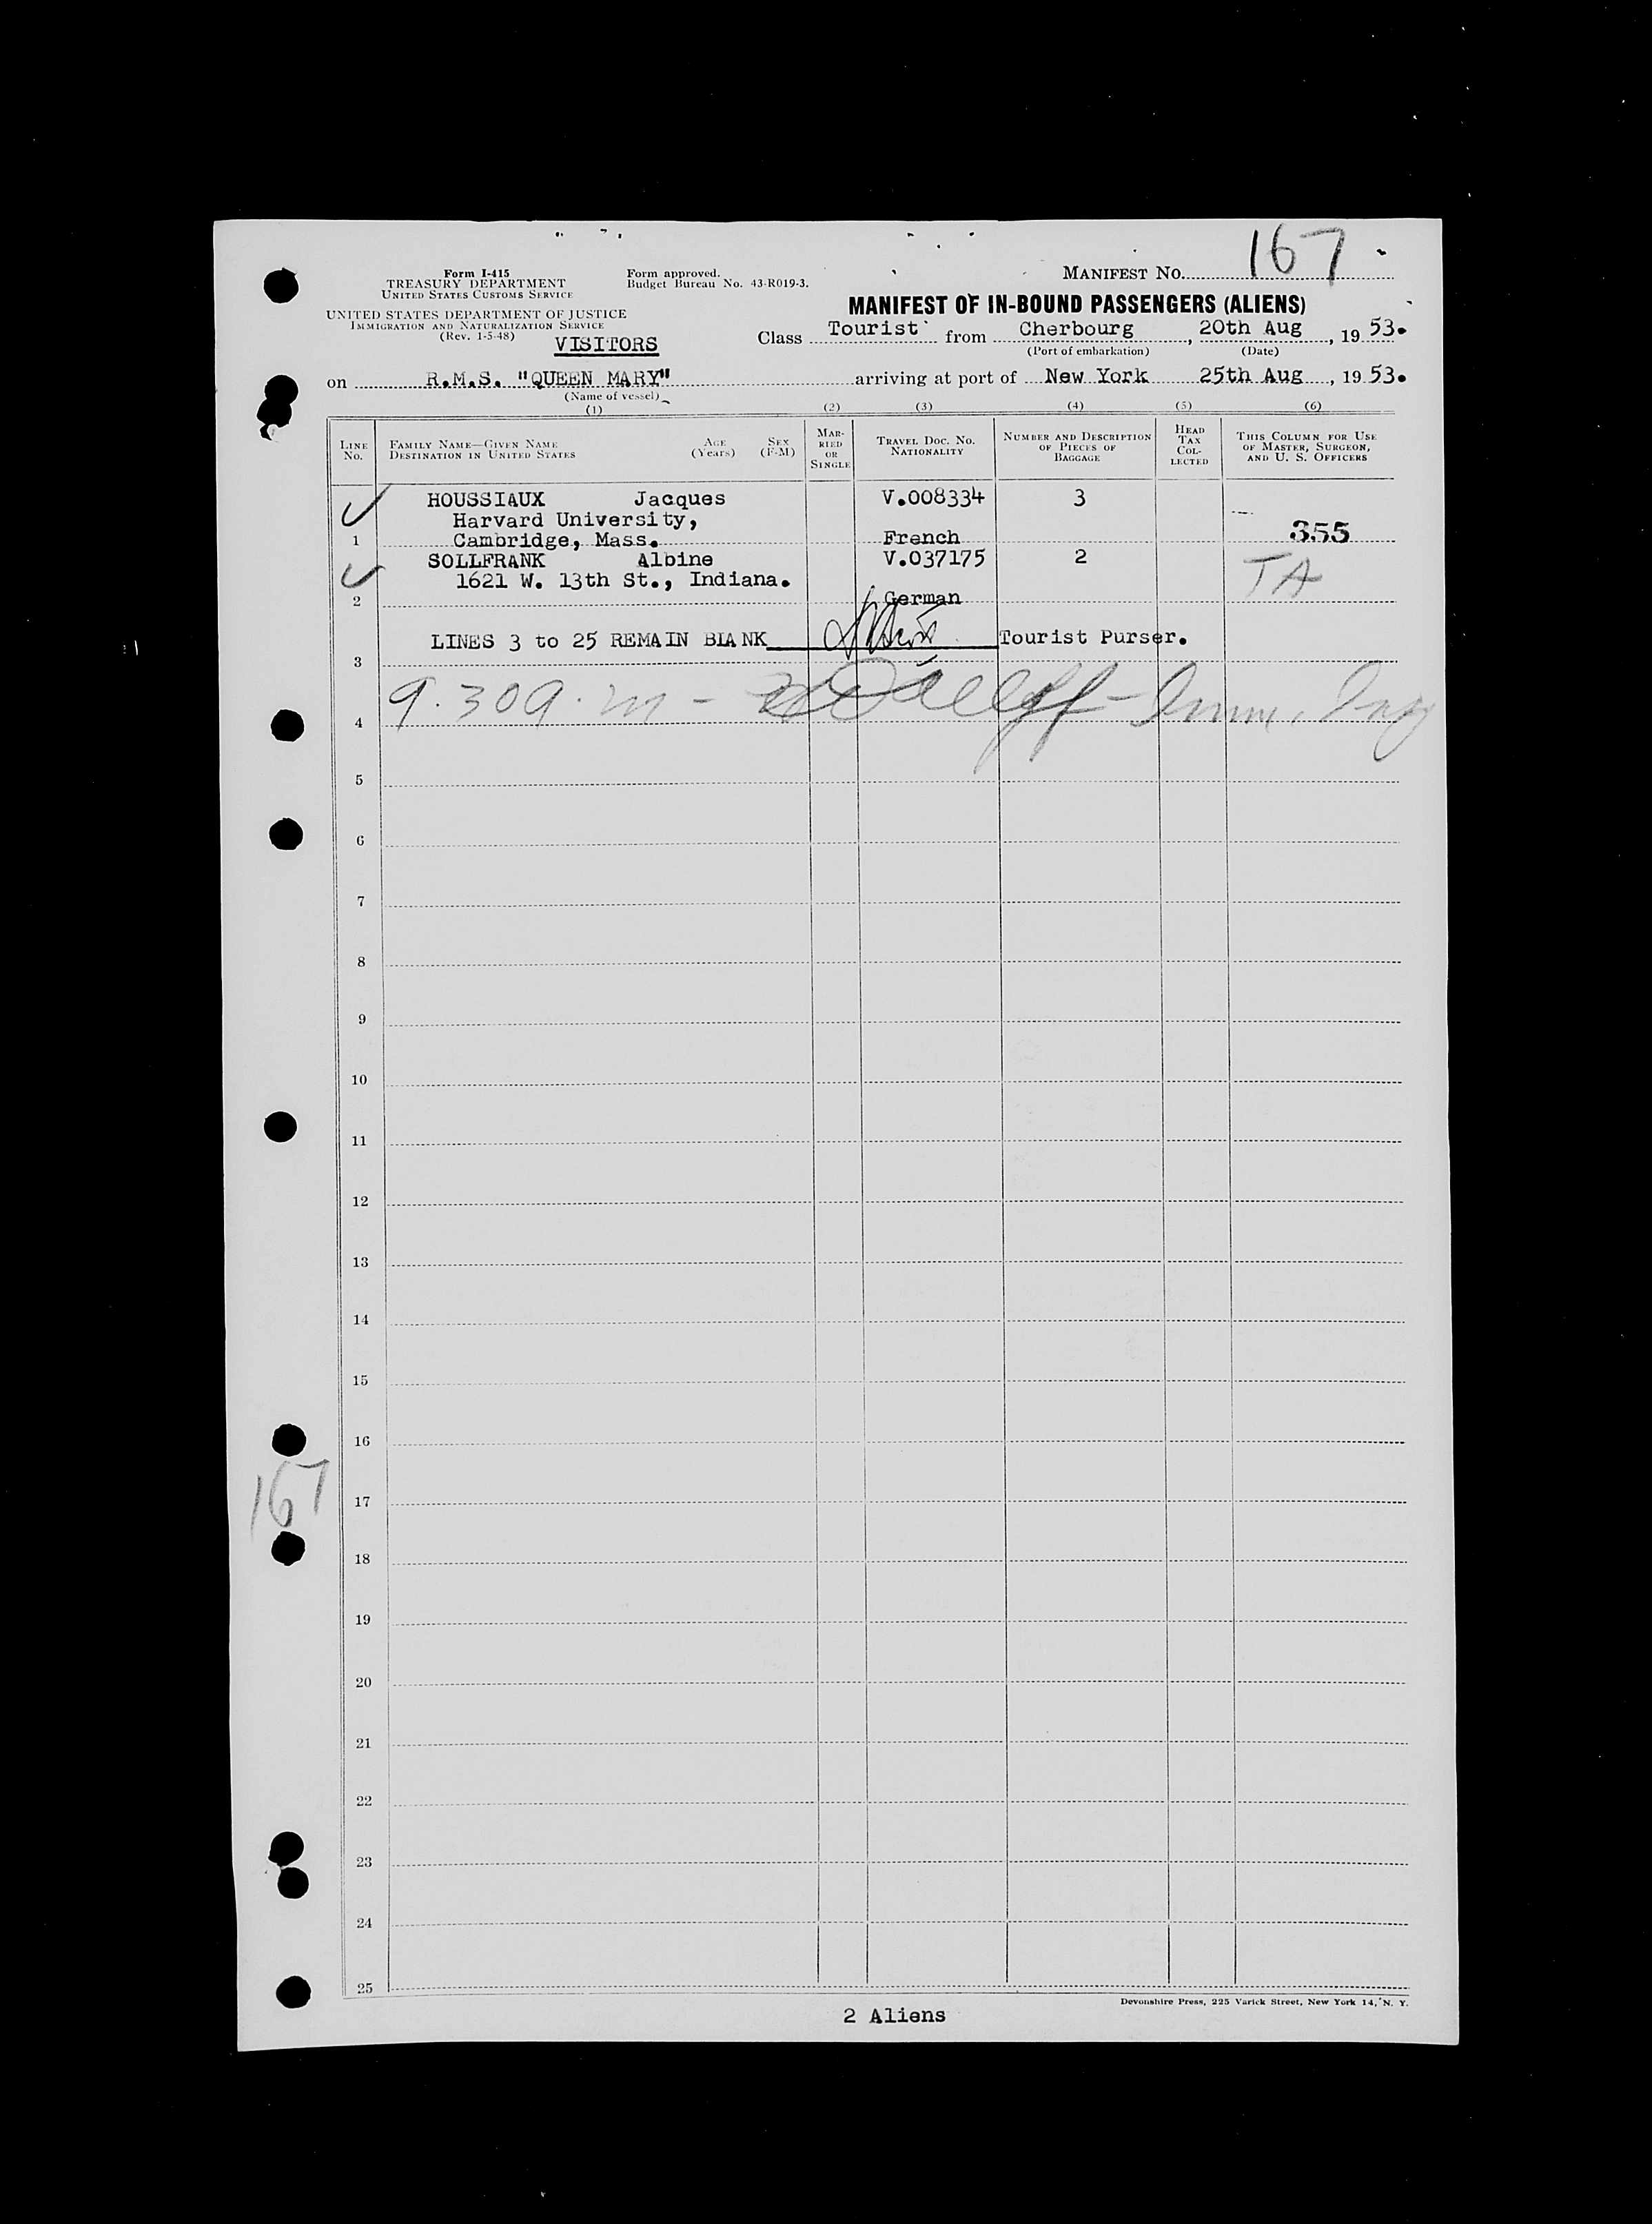 167
Form I-415
TREASURY DEPARTMENT
UNITED STATES CUSTOMS SERVICE
Form approved.
Budget Bureau No. 43-R019-3.
MANIFEST No. 
UNITED STATES DEPARTMENT OF JUSTICE
IMMIGRATION AND NATURALIZATION SERVICE
(Rev. 1-5-48)
VISITORS
MANIFEST OF IN-BOUND PASSENGERS (ALIENS)
Class Tourist from Cherbourg, 20th Aug, 19 53.
(Port of embarkation) (Date)
on R.M.S. "QUEEN MARY" arriving at port of New York 25th Aug, 19 53.
(Name of vessel)
(1) (2) (3) (4) (5) (6)
LINE No.
FAMILY NAME—GIVEN NAME
DESTINATION IN UNITED STATES
AGE (Years)
SEX (F-M)
MARRIED OR SINGLE
TRAVEL DOC. NO.
NATIONALITY
NUMBER AND DESCRIPTION OF PIECES OF BAGGAGE
HEAD TAX COLLECTED
THIS COLUMN FOR USE OF MASTER, SURGEON, AND U. S. OFFICERS
HOUSSIAUX Jacques V.008334 3
Harvard University,
1 Cambridge, Mass. French 355
SOLLFRANK Albine V.037175 2
1621 W. 13th St., Indiana. TA
2 German
LINES 3 to 25 REMAIN BLANK Tourist Purser.
3
9.30 a.m - Imm. Insp
4
5
6
7
8
9
10
11
12
13
14
15
16
167
17
18
19
20
21
22
23
24
25
Devonshire Press, 225 Varick Street, New York 14, N. Y.
2 Aliens